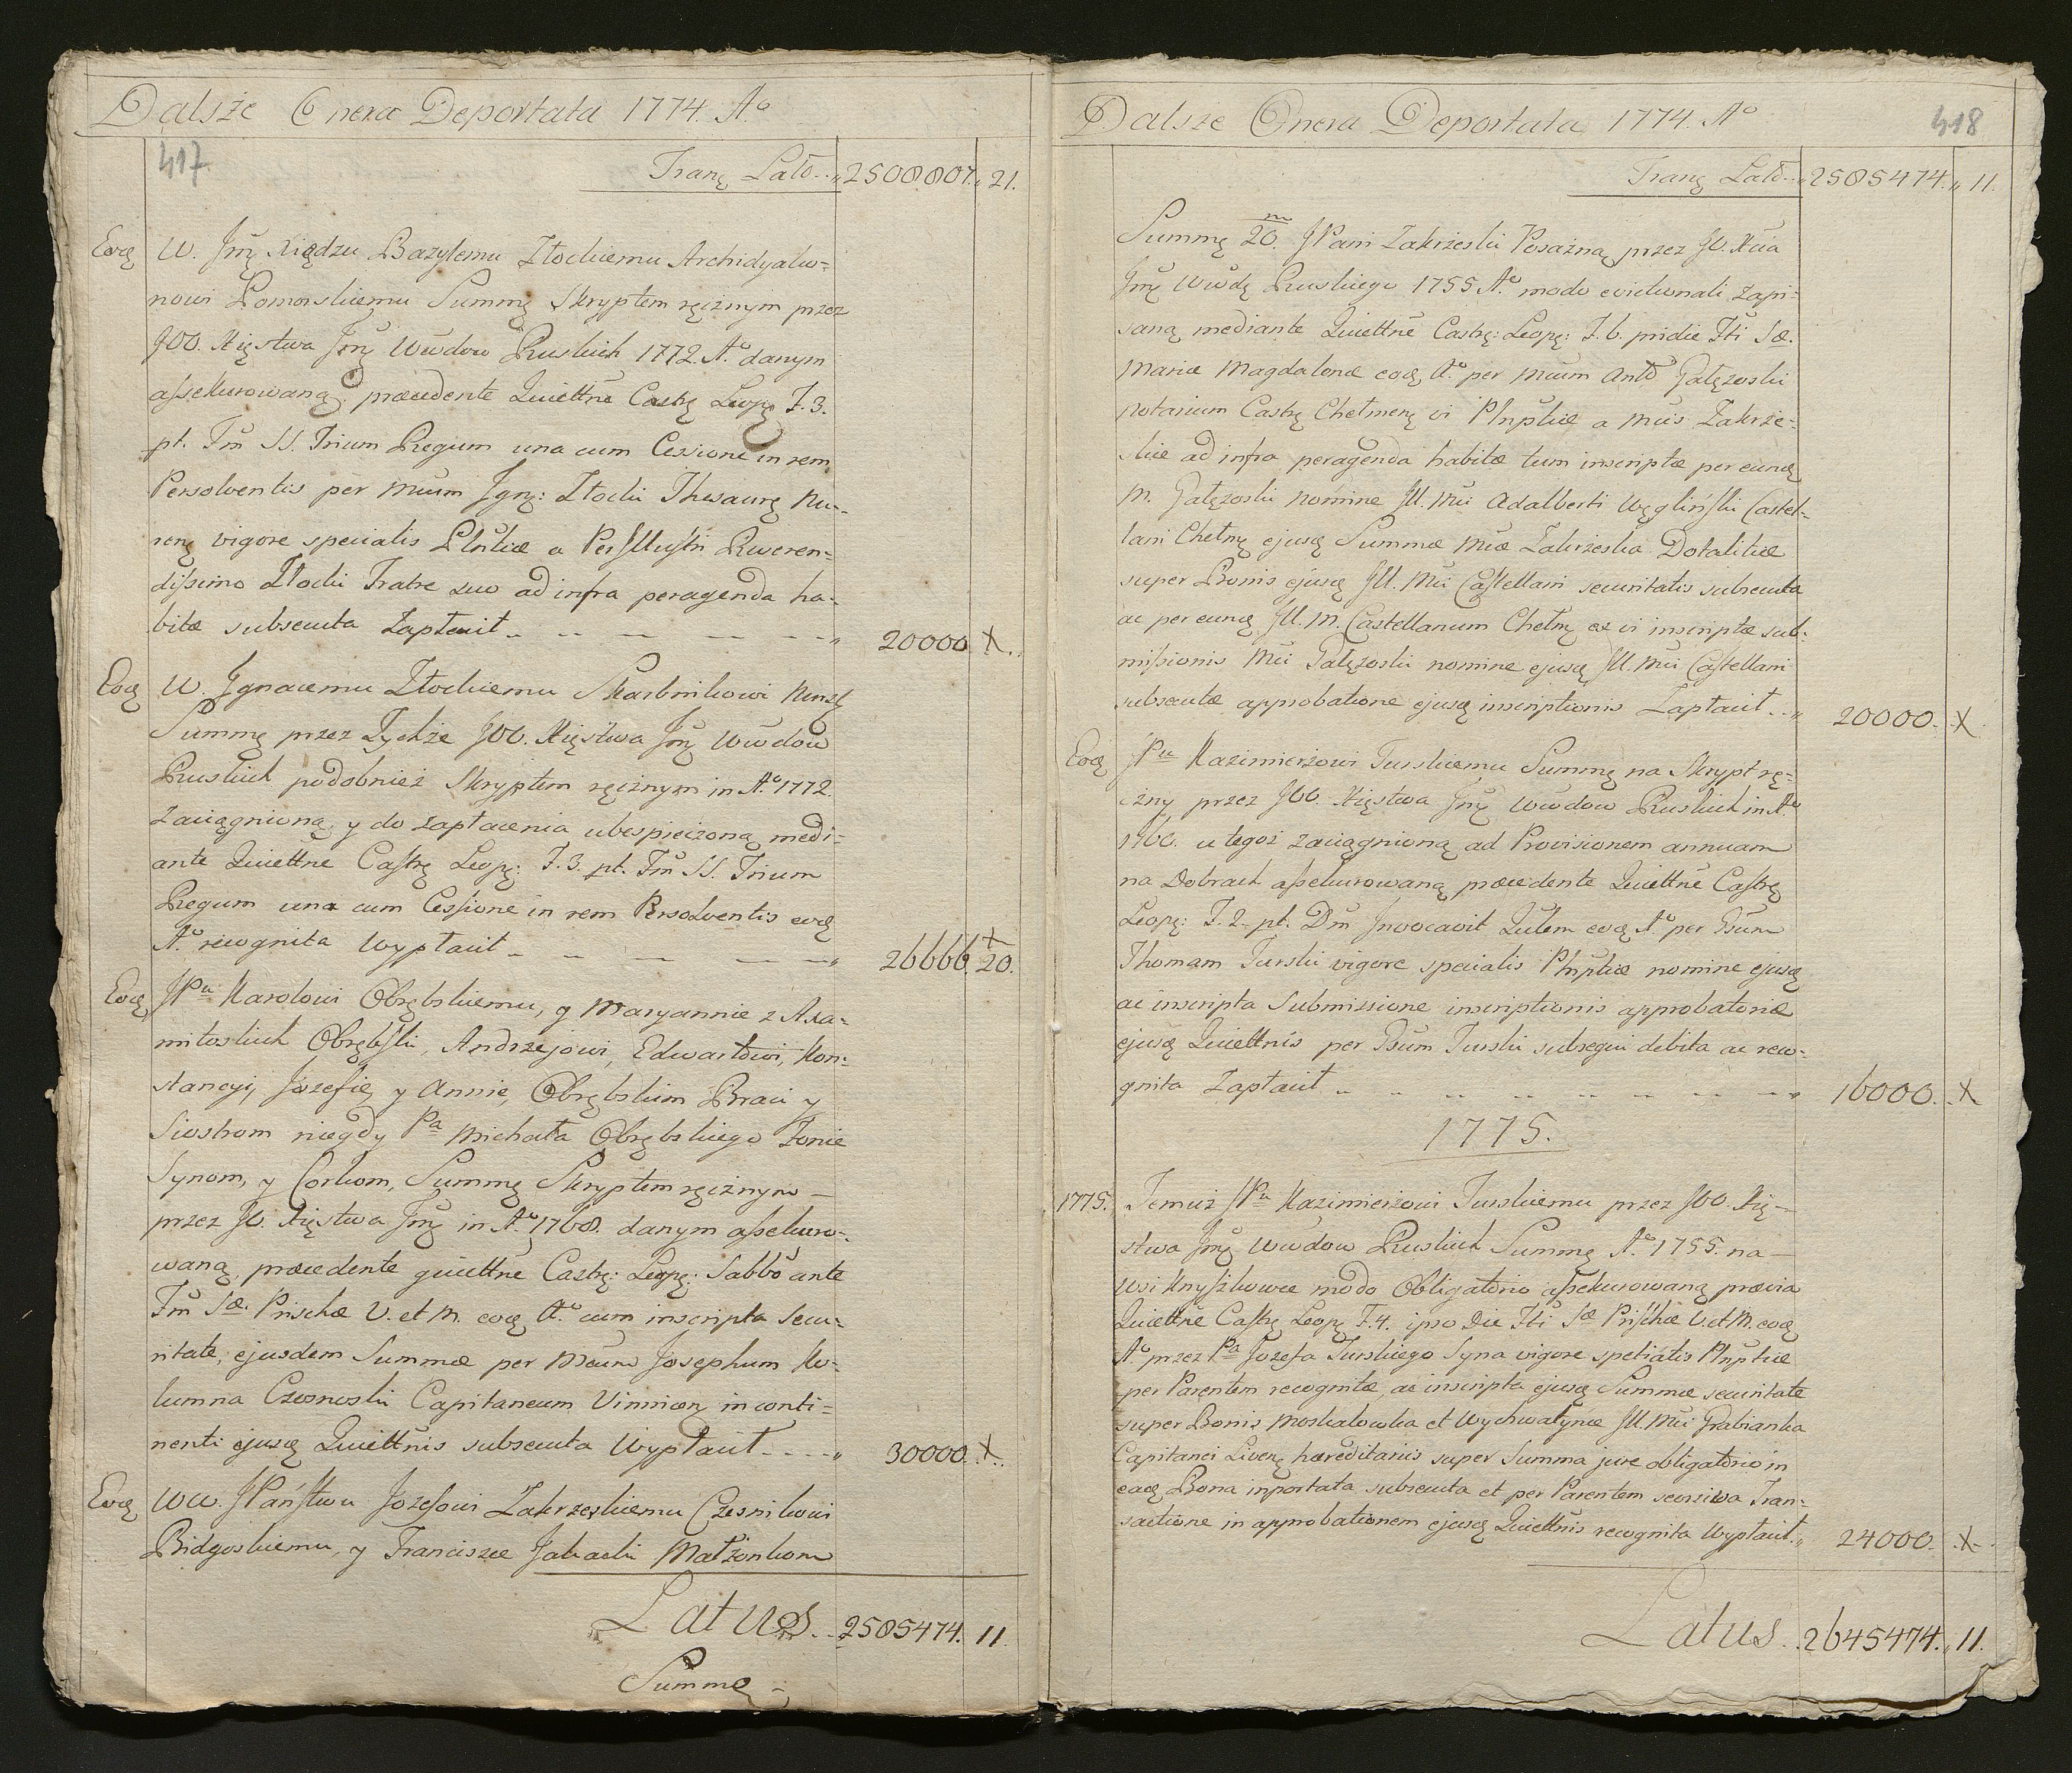 Dalsże Onera Deportata 1774. Aº
417
Tranę Latō.. „ 2508807. „ 21.
Eodę W. Jmę Xiędzu Bazylemu Złockiemu Archidyako=
nowi Pomorskiemu Summę Skryptem ręcznym przez
JOO. Xięstwa Jmę Wwdow Ruskich 1772. Aº danym
assekurowaną præcedente Quiettne Castrę Leopę F. 3.
pt. Fm SS. Trium Regum una cum Cessione in rem
Persolventis per Mcum Jgnę: Złocki Thesaurę Nu-
renę vigore specialis Plntiæ a Perillustri Reveren=
dissimo Złocki Fratre suo ad infra peragenda ha=
bitæ subsecuta Zapłacit „ 20000. X.
Eodę W. Jgnacemu Złockiemu Skarbnikowi Nursk
Summę przez Tychże JOO. Xięstwa Jmę Wwdow
Ruskich podobnież Skryptem ręcznym in Aº 1772.
Zaciągnioną, y do zapłacenia ubespieczoną, medi=
ante Quiettne Castrę Leopę: F. 3. pt. Fm SS. Trium
Regum una cum Cessione in rem Persolventis eodę
Aº recognita Wypłacit „ 26666. X 20.
Eodę JPu Karolowi Obrębskiemu, y Maryannie z Axa=
mitoskich Obrębski, Andrzejowi, Edwardowi, Kon=
stancyi, Jozefie, y Annie, Obrębskim Braci y
Siostrom niegdy Pa Michała Obrębskiego Zonie
Synom, y Corkom, Summę Skryptem ręcznym —
przez JO. Xięstwa Jmę in Aº 1768. danym assekuro-
waną, præcedente quiettne Castrę: Leopę: Sabbō ante
Fm Sæ. Priscæ V. et M. eodę Aº cum inscripta secu=
ritate, ejusdem Summæ per Mcum Josephum Ko=
lumna Czesnoski Capitaneum Vinnicenę in conti=
nenti ejusdę Quiettnis subsecuta Wypłacit „ 30000. X.
Eodę WW. JPaństwu Jozefowi Zakrzeskiemu Czesnikowi
Bidgoskiemu, y Franciszce Małżonkom
Latus.. 2585474. 11.
Summę -

Dalsze Onera Deportata 1774. Aº
418
Tranę Latō.. „ 2585474. „ 11.
Summę 20. m JPani Zakrzeski Posażną, przez JO. Xcia
Jmę Wwdę Ruskiego 1755 Aº modo evictionali Zapi=
saną mediante Quiettne Castrę: Leopę: F. 6. pridie Fti Sæ.
Mariæ Magdalenæ eodę Aº per Mcum Antō Gałęzoski
Notarium Castrę Chełmenę vi Plnptiæ a Mcis Zakrze=
skie ad infra peragenda habitæ tum inscriptæ per eundę
M. Gałęzoski nomine Ill. Mci Adalberti Węglinski Castel=
lani Chełmę ejusdę Summæ Mcæ Zakrzeska Dotalitiæ
super Bonis ejusdę Ill. Mci Castellani securitatis subsecuta
ac per eundę Ill. M. Castellanum Chełmę ex vi inscriptæ sub=
missionis Mci Gałęzoski nomine ejusdę Ill. Mci Castellani
subsecutæ approbatione ejusdę inscriptionis Zapłacit.. „ 20000. X
Eodę JPu Kazimierzowi Turskiemu Summę na Skrypt rę=
czny przez JOO. Xięstwa Jmę Wwdow Ruskich in Aº
1766. u tegoż zaciągnioną ad Provisionem annuam
na Dobrach assekurowaną præcedente Quiettne Castrę
Leopę: F. 2. pt. Dm Jnvocavit Qūlem eodę Aº per Gsum
Thomam Turski vigore specialis Plnptiæ nomine ejusdę
ac inscripta Submissione inscriptionis approbatoriæ
ejusdę Quiettnis per Gsum Turski subsequi debita ac reco=
gnita Zapłacit „ 16000. X
1775.
1775. Temuż JPu Kazimierzowi Turskiemu przez JOO. Xię—
stwa Jmę Wwdow Ruskich Summę Aº 1755. na—
Wsi Knyszkowce modo Obligatorio assekurowaną prævia
Quiettne Castrę Leopę F. 4. ipso Die Fti Sæ Priscæ V. et M. eodę
Aº przez Pa Jozefa Turskiego Syna vigore spetialis Plnptiæ
per Parentem recognitæ, ac inscripta ejusdę Summæ securitate
super Bonis Moskalowka et Wychwatynce Ill. Mci Grabianka
Capitanei Livenę hæreditariis super Summa jure obligatorio in
eadę Bona inportata subsecuta et per Parentem seorsiva Tran=
sactione in approbationem ejusdę Quiettnis recognita Wypłacit „ 24000. X
Latus.. 2645474. „ 11.